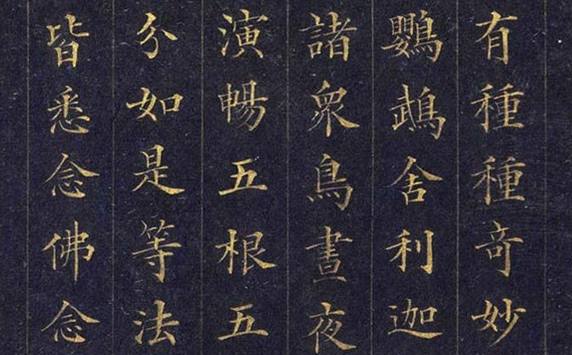 有種種奇妙
鸚鵡舍利迦
諸衆鳥晝夜
演暢五根五
分如是等法
皆悉念佛念